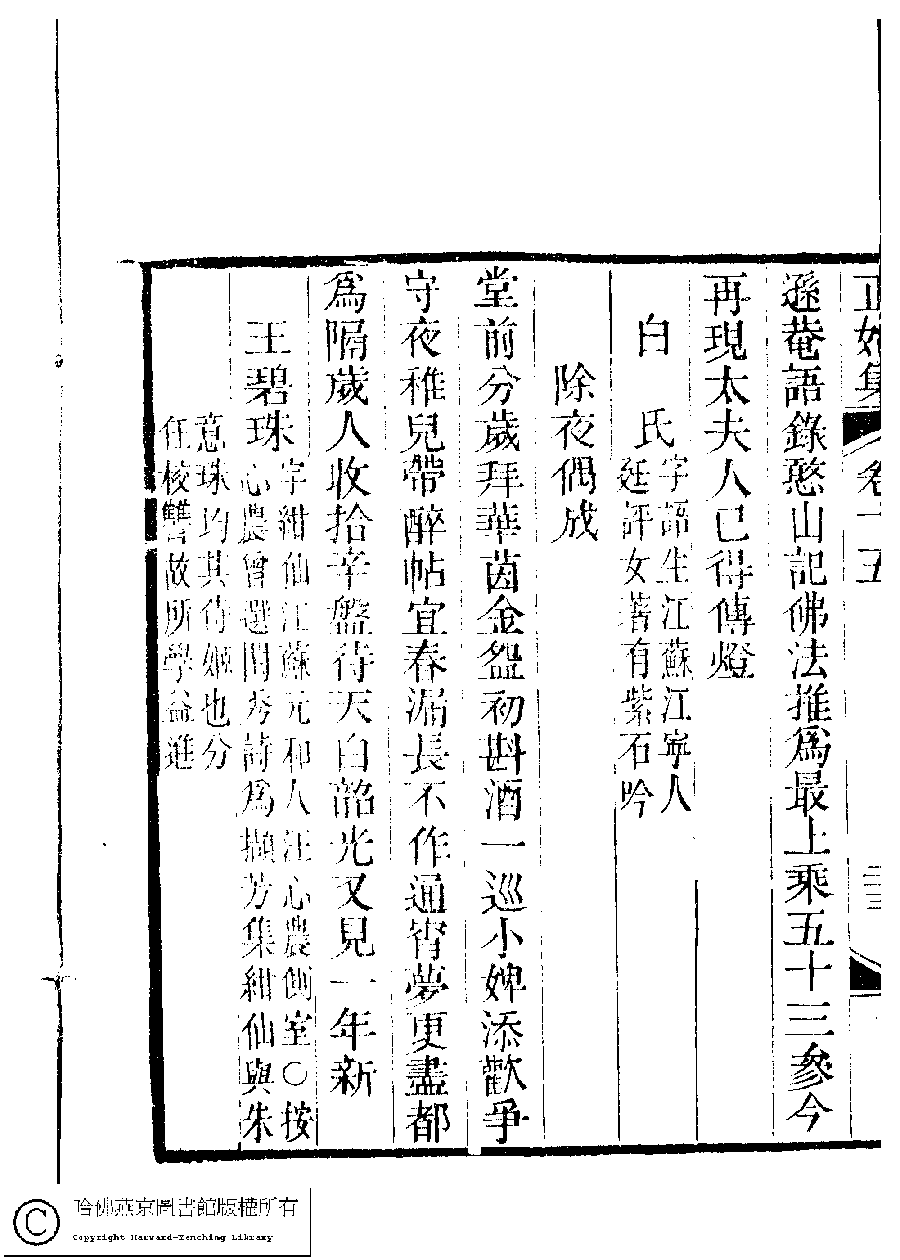 正始集 卷十五
遜菴語錄憨山記佛法推爲最上乘五十三參今
再現太夫人已得傳燈
白 氏 字語生江蘇江寧人
廷評女著有紫石吟
除夜偶成
堂前分歲拜華茵金盌初斟酒一巡小婢添歡爭
守夜稚兒帶醉帖宜春漏長不作通宵夢更盡都
爲隔歲人收拾辛盤待天白韶光又見一年新
王碧珠 字紺仙江蘇元和人汪心農簉室○按
心農曾選閨秀詩爲擷芳集紺仙與朱
意珠均其侍姬也分
任校讐故所學益進
哈佛燕京圖書館版權所有
Copyright Harvard-Yenching Library